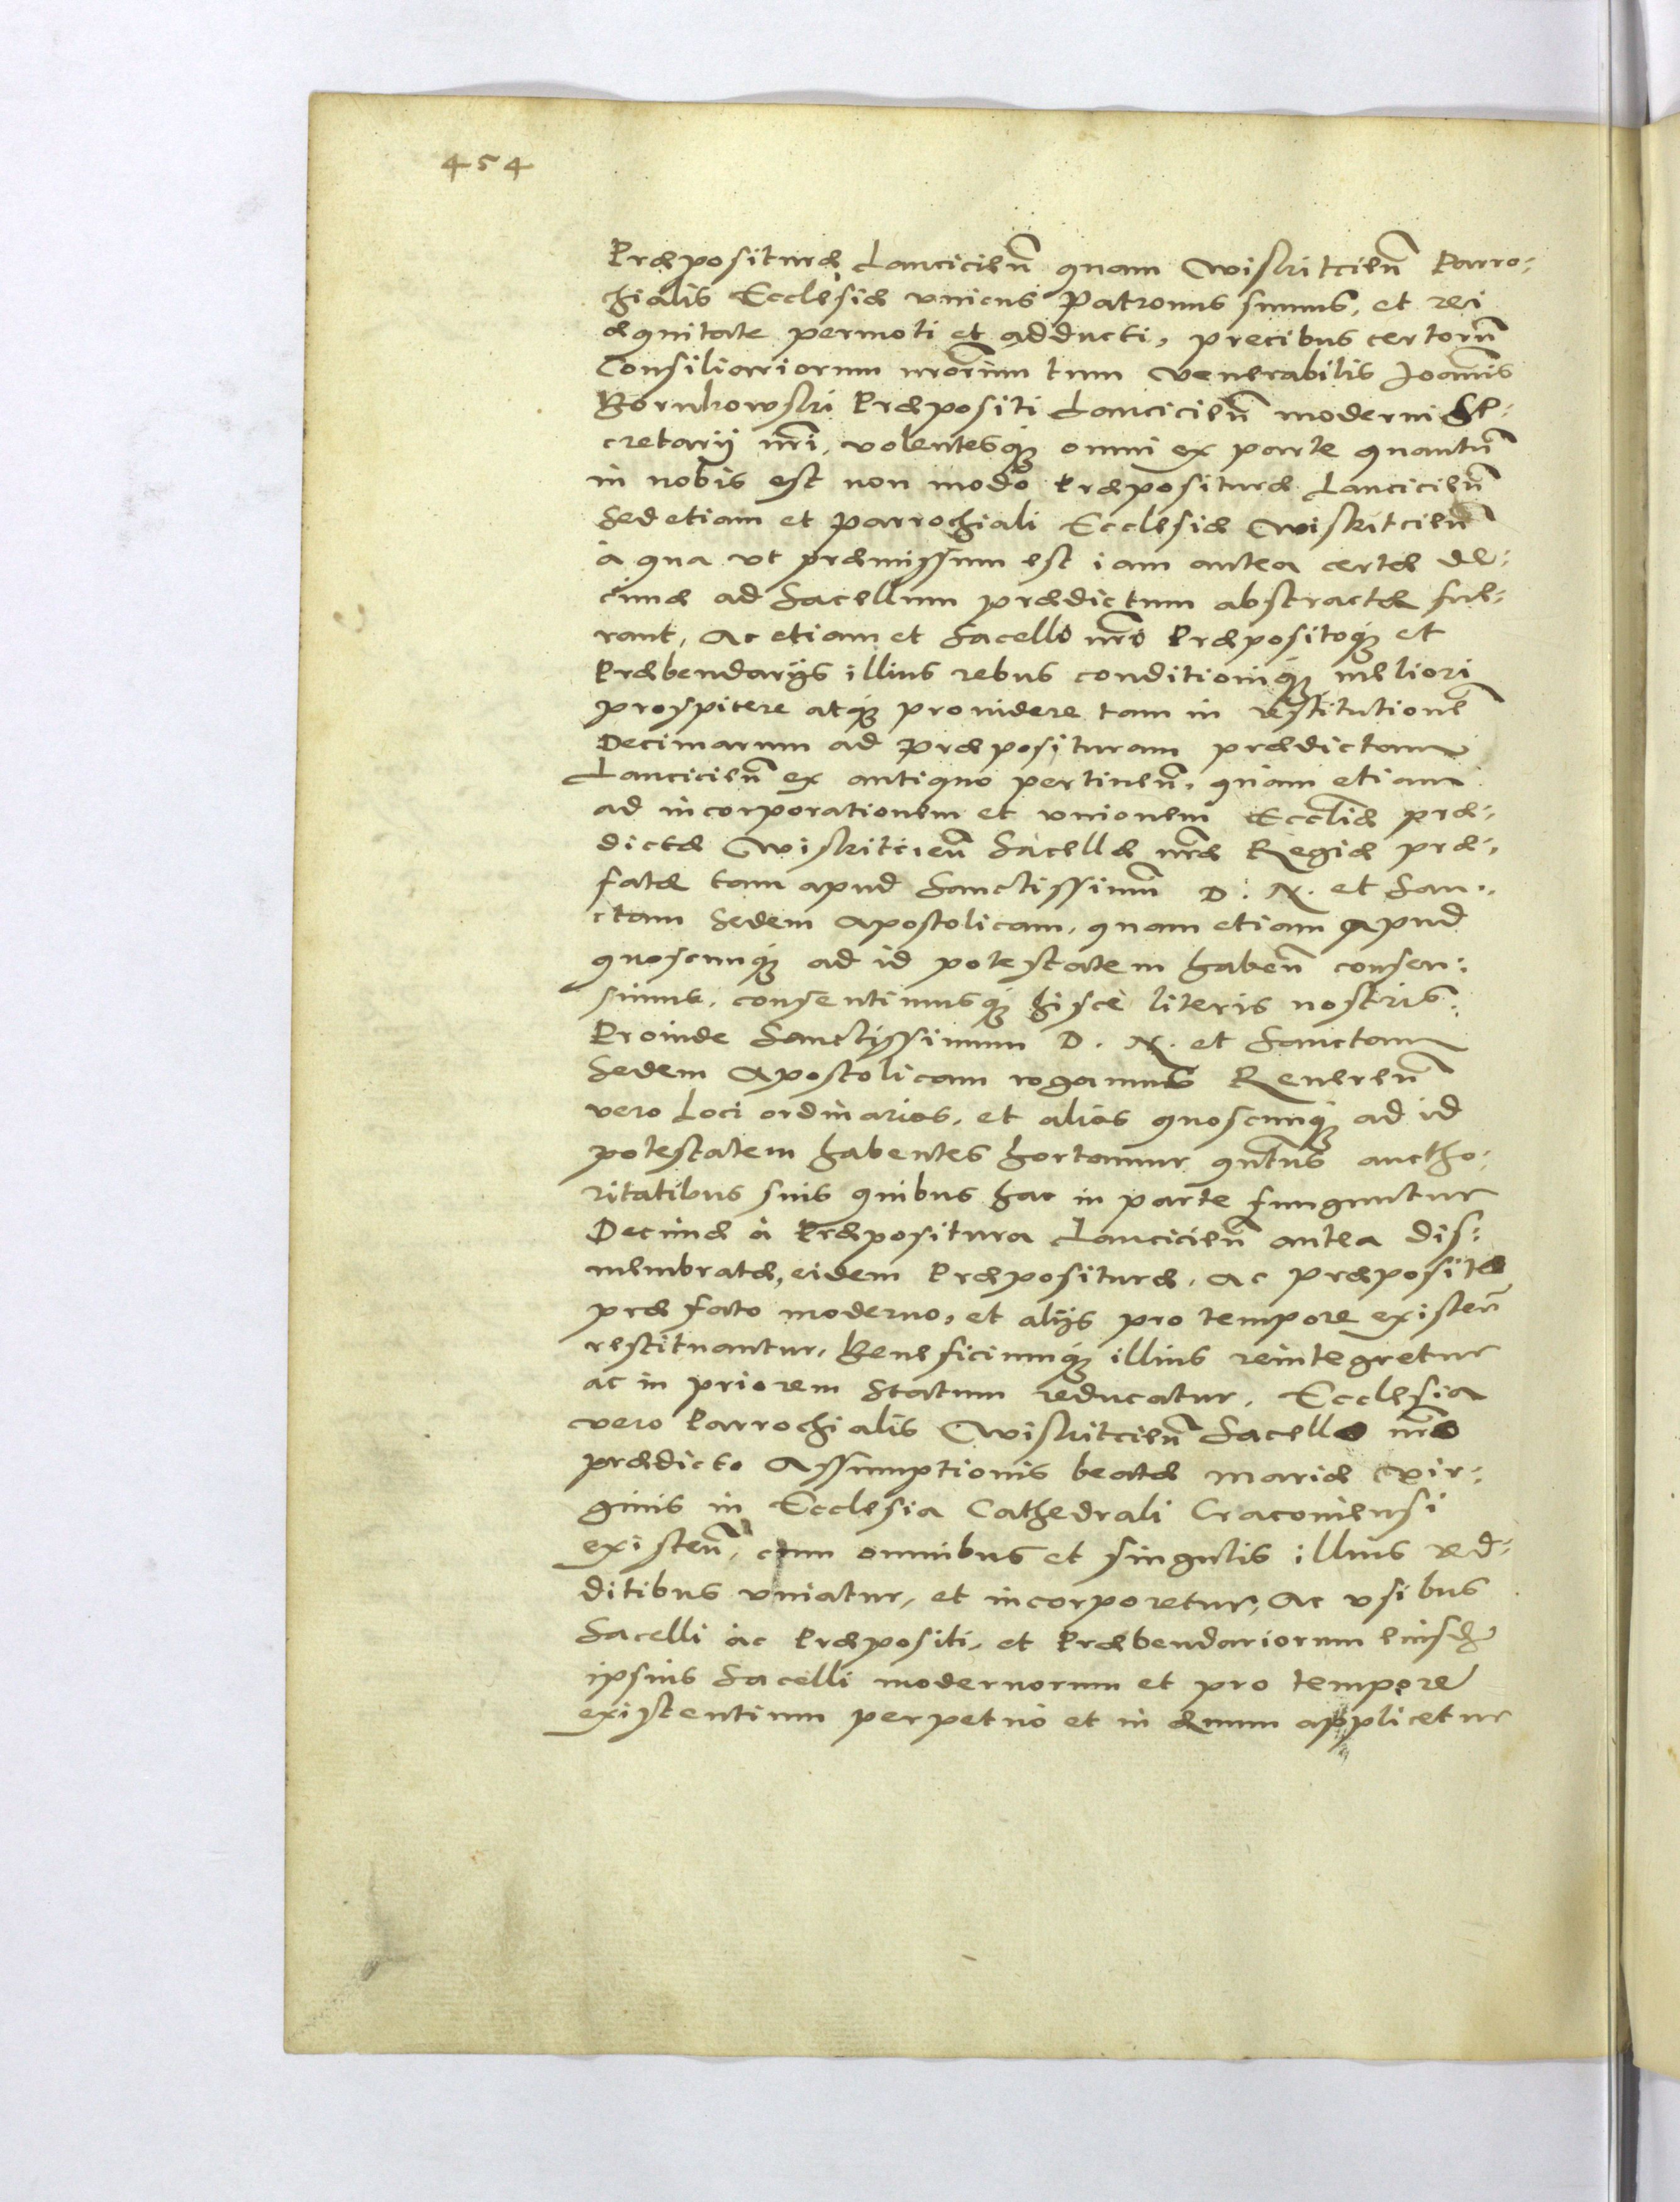 454
Præposituræ Lancicien̄ quam Wiskitcien̄ Parro:
chialis Ecclesiæ vnicus Patronus sumus, et rei
æquitate permoti et adducti, precibus certorū
Consiliariorum nrorum tum Venerabilis Joannis
Bornkowski Præpositi Lancicien̄ moderni Se:
cretarij nrī, volentesq3 omni ex parte quantū
in nobis est non modo Præposituræ Lancicien̄
Sed etiam et parrochiali Ecclesiæ Wiskitcien̄
à qua vt præmissum est iam antea certæ de:
cimæ ad Sacellum prædictum abstractæ fue:
rant, Ac etiam et Sacello nrō Præpositoq3 et
Præbendarijs illius rebus conditioniq3 meliori
prospicere atq3 prouidere tam in restitutionē
Decimarum ad præposituram prædictam
Lancicien̄ ex antiquo pertinen̄, quam etiam
ad incorporationem et vnionem Eccliæ præ:
dictæ Wiskitcien̄ Sacellæ nræ Regiæ præ:
fatæ tam apud Sanctissimū D. N. et San:
ctam Sedem Apostolicam, quam etiam apud
quoscunq3 ad id potestatem haben̄ consen:
simus, consentimusq3 hisce literis nostris:
Proinde Sanctissimum D. N. et Sanctam
Sedem Apostolicam rogamus Reueren̄
vero Loci ordinarios, et alios quoscunq3 ad id
potestatem habentes hortamur qntus auctho:
ritatibus suis quibus hac in parte funguntur
Decimæ à Præpositura Lancicien̄ antea dis:
membratæ, eidem Præposituræ, Ac Præposito
præfato moderno, et alijs pro tempore existen̄
restituantur, Beneficiumq3 illius reintegretur
ac in priorem Statum reducatur, Ecclesia
vero Parrochialis Wiskitcien̄ Sacello nrō
prædicto Assumptionis beatæ Mariæ Vir:
ginis in Ecclesia Cathedrali Cracouiensi
existen̄, cum omnibus et singulis illius red:
ditibus vniatur, et incorporetur, Ac vsibus
Sacelli ac Præpositi, et Præbendariorum eiusdē
ipsius Sacelli modernorum et pro tempore
existentium perpetuò et in æuum applicetur